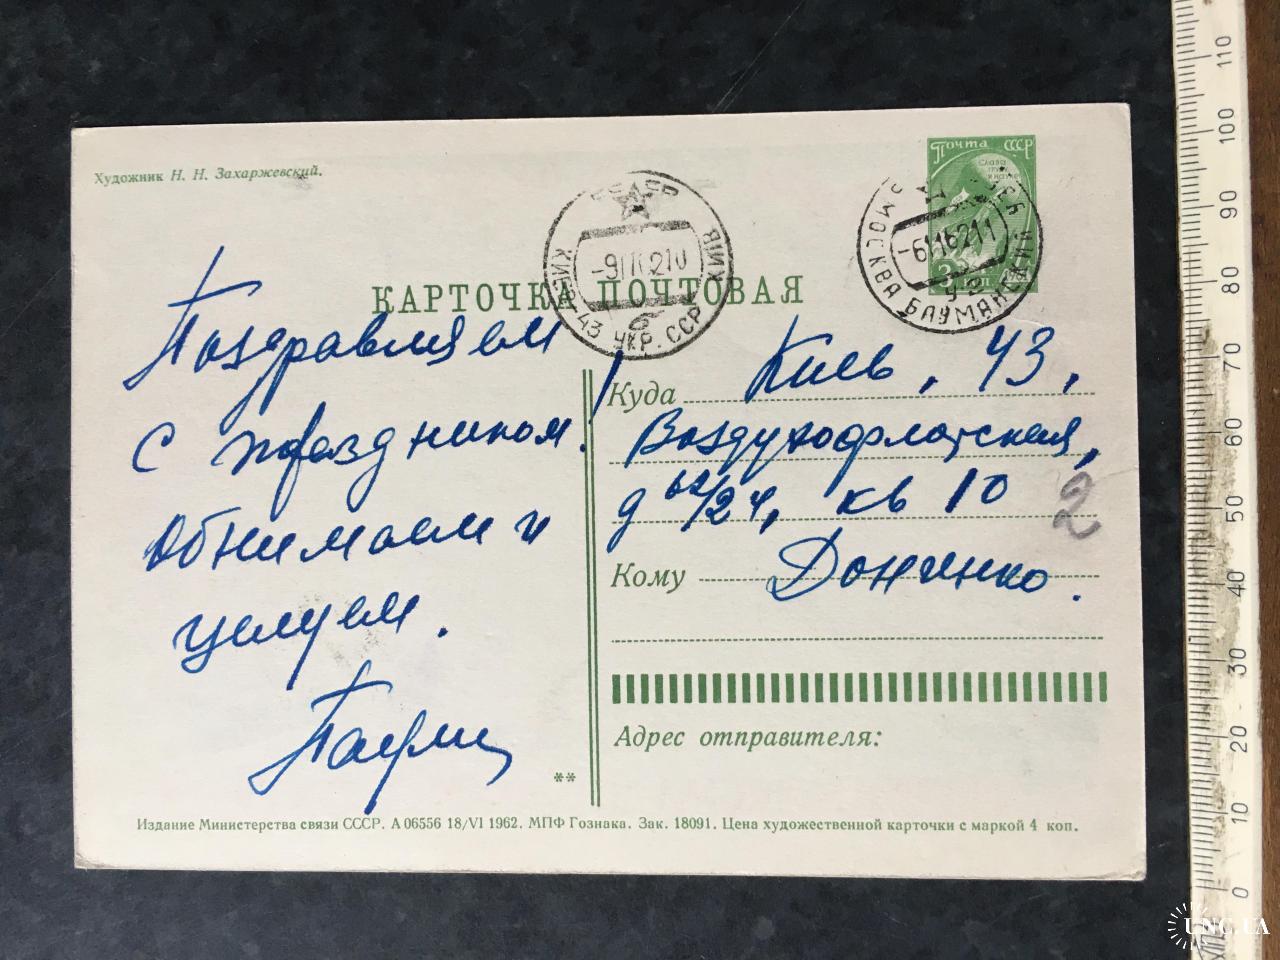 Художник Н. Н. Захаржевский.
Почта СССР
КАРТОЧКА ПОЧТОВАЯ
МОСКВА БАУМАНСКИЙ
-6116211
КИЕВ-43 УКР. ССР
Поздравляем
с праздником!
Обнимаем и
целуем.
Куда Киев, 43,
Воздухофлотская,
д 62/24, кв 10
2
Кому Донченко.
Адрес отправителя:
**
Издание Министерства связи СССР. А 06556 18/VI 1962. МПФ Гознака. Зак. 18091. Цена художественной карточки с маркой 4 коп.
110
100
90
80
70
60
50
40
30
20
10
0
UNC.UA